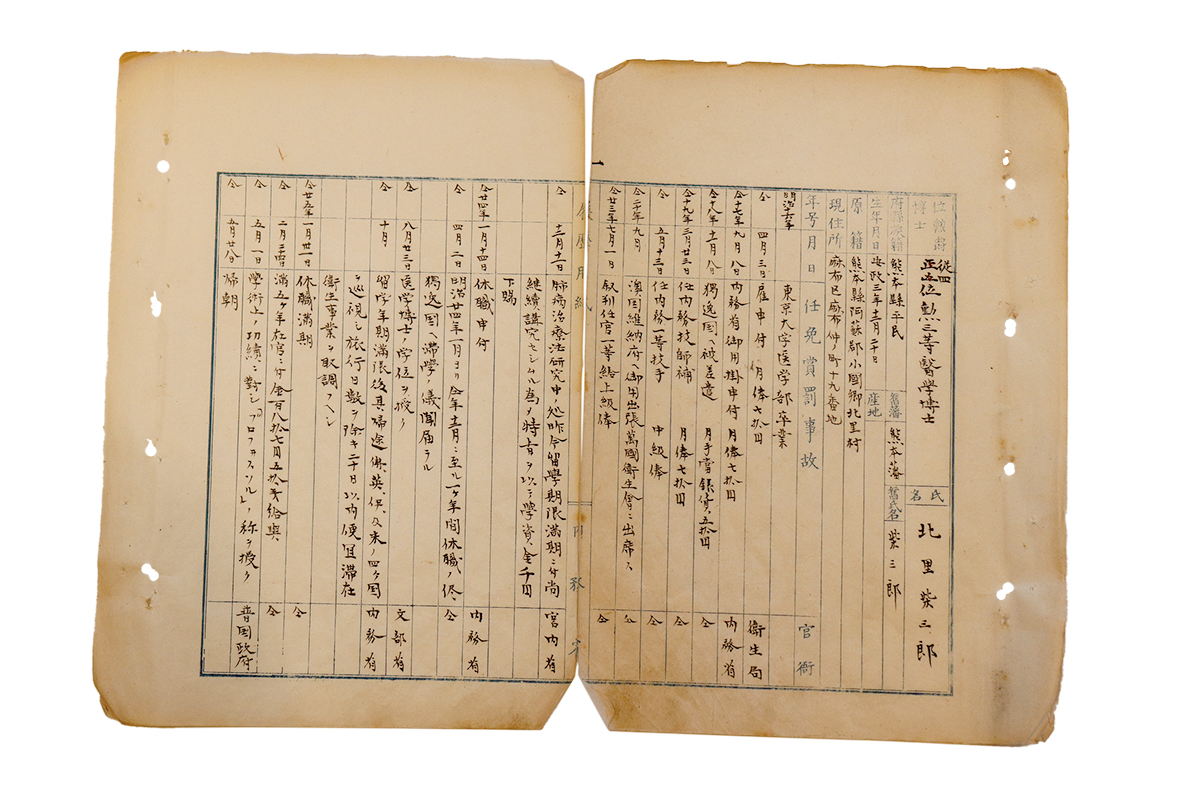 位勲爵
博士
從四
正五位勲三等醫學博士
氏名
北里柴三郎
府縣族籍
熊本縣平民
舊藩
熊本藩
舊氏名
柴三郎
生年月日
安政三年十二月二十日
産地
原籍
熊本縣阿蘇郡小國郷北里村
現住所
麻布区麻布仲ノ町十九番地
年号月日
任免賞罰事故
官衙
明治十六年
東京大学医学部卒業
仝 四月三日 雇申付 月俸七拾円 衛生局
仝十七年九月八日 内務省御用掛申付 月俸七拾円 内務省
仝十八年十一月八日 獨逸国ヘ被差遣 月手當銀貨五拾円 仝
仝十九年三月廿三日 任内務技師補 月俸七拾円 仝
仝 五月十三日 任内務一等技手 中級俸 仝
仝二十年九月 澳国維納府ヘ御用出張萬國衛生會ニ出席ス 仝
仝廿三年七月一日 叙判任官一等給上級俸 仝
一
履歴用紙
内務省
仝 十二月十一日 肺病治療法研究中ノ処昨今留學期限満期ニ付尚 宮内省
継續講究セシムル為メ特旨ヲ以テ學資金千円
下賜
仝廿四年一月十四日 休職申付 内務省
仝 四月二日 明治廿四年一月ヨリ仝年十二月ニ至ル一ヶ年間休職ノ儘 仝
獨逸國ヘ滞學ノ儀聞届ラル
仝 八月廿三日 医学博士ノ学位ヲ授ク 文部省
仝 十月 留学年期満限後其帰途佛、英、伊、及米ノ四ヶ国 内務省
ヲ巡視シ旅行日數ヲ除キ二十日以内便宜滞在
衛生事業ヲ取調フヘシ
仝廿五年一月廿一日 休職満期 仝
仝 二月二十四日 満五ヶ年在官ニ付金百八拾七円五拾戔給與 仝
仝 五月一日 學術上ノ功績ニ對シ「プロフェッソル」ノ称ヲ授ク 普国政府
仝 五月廿八日 帰朝